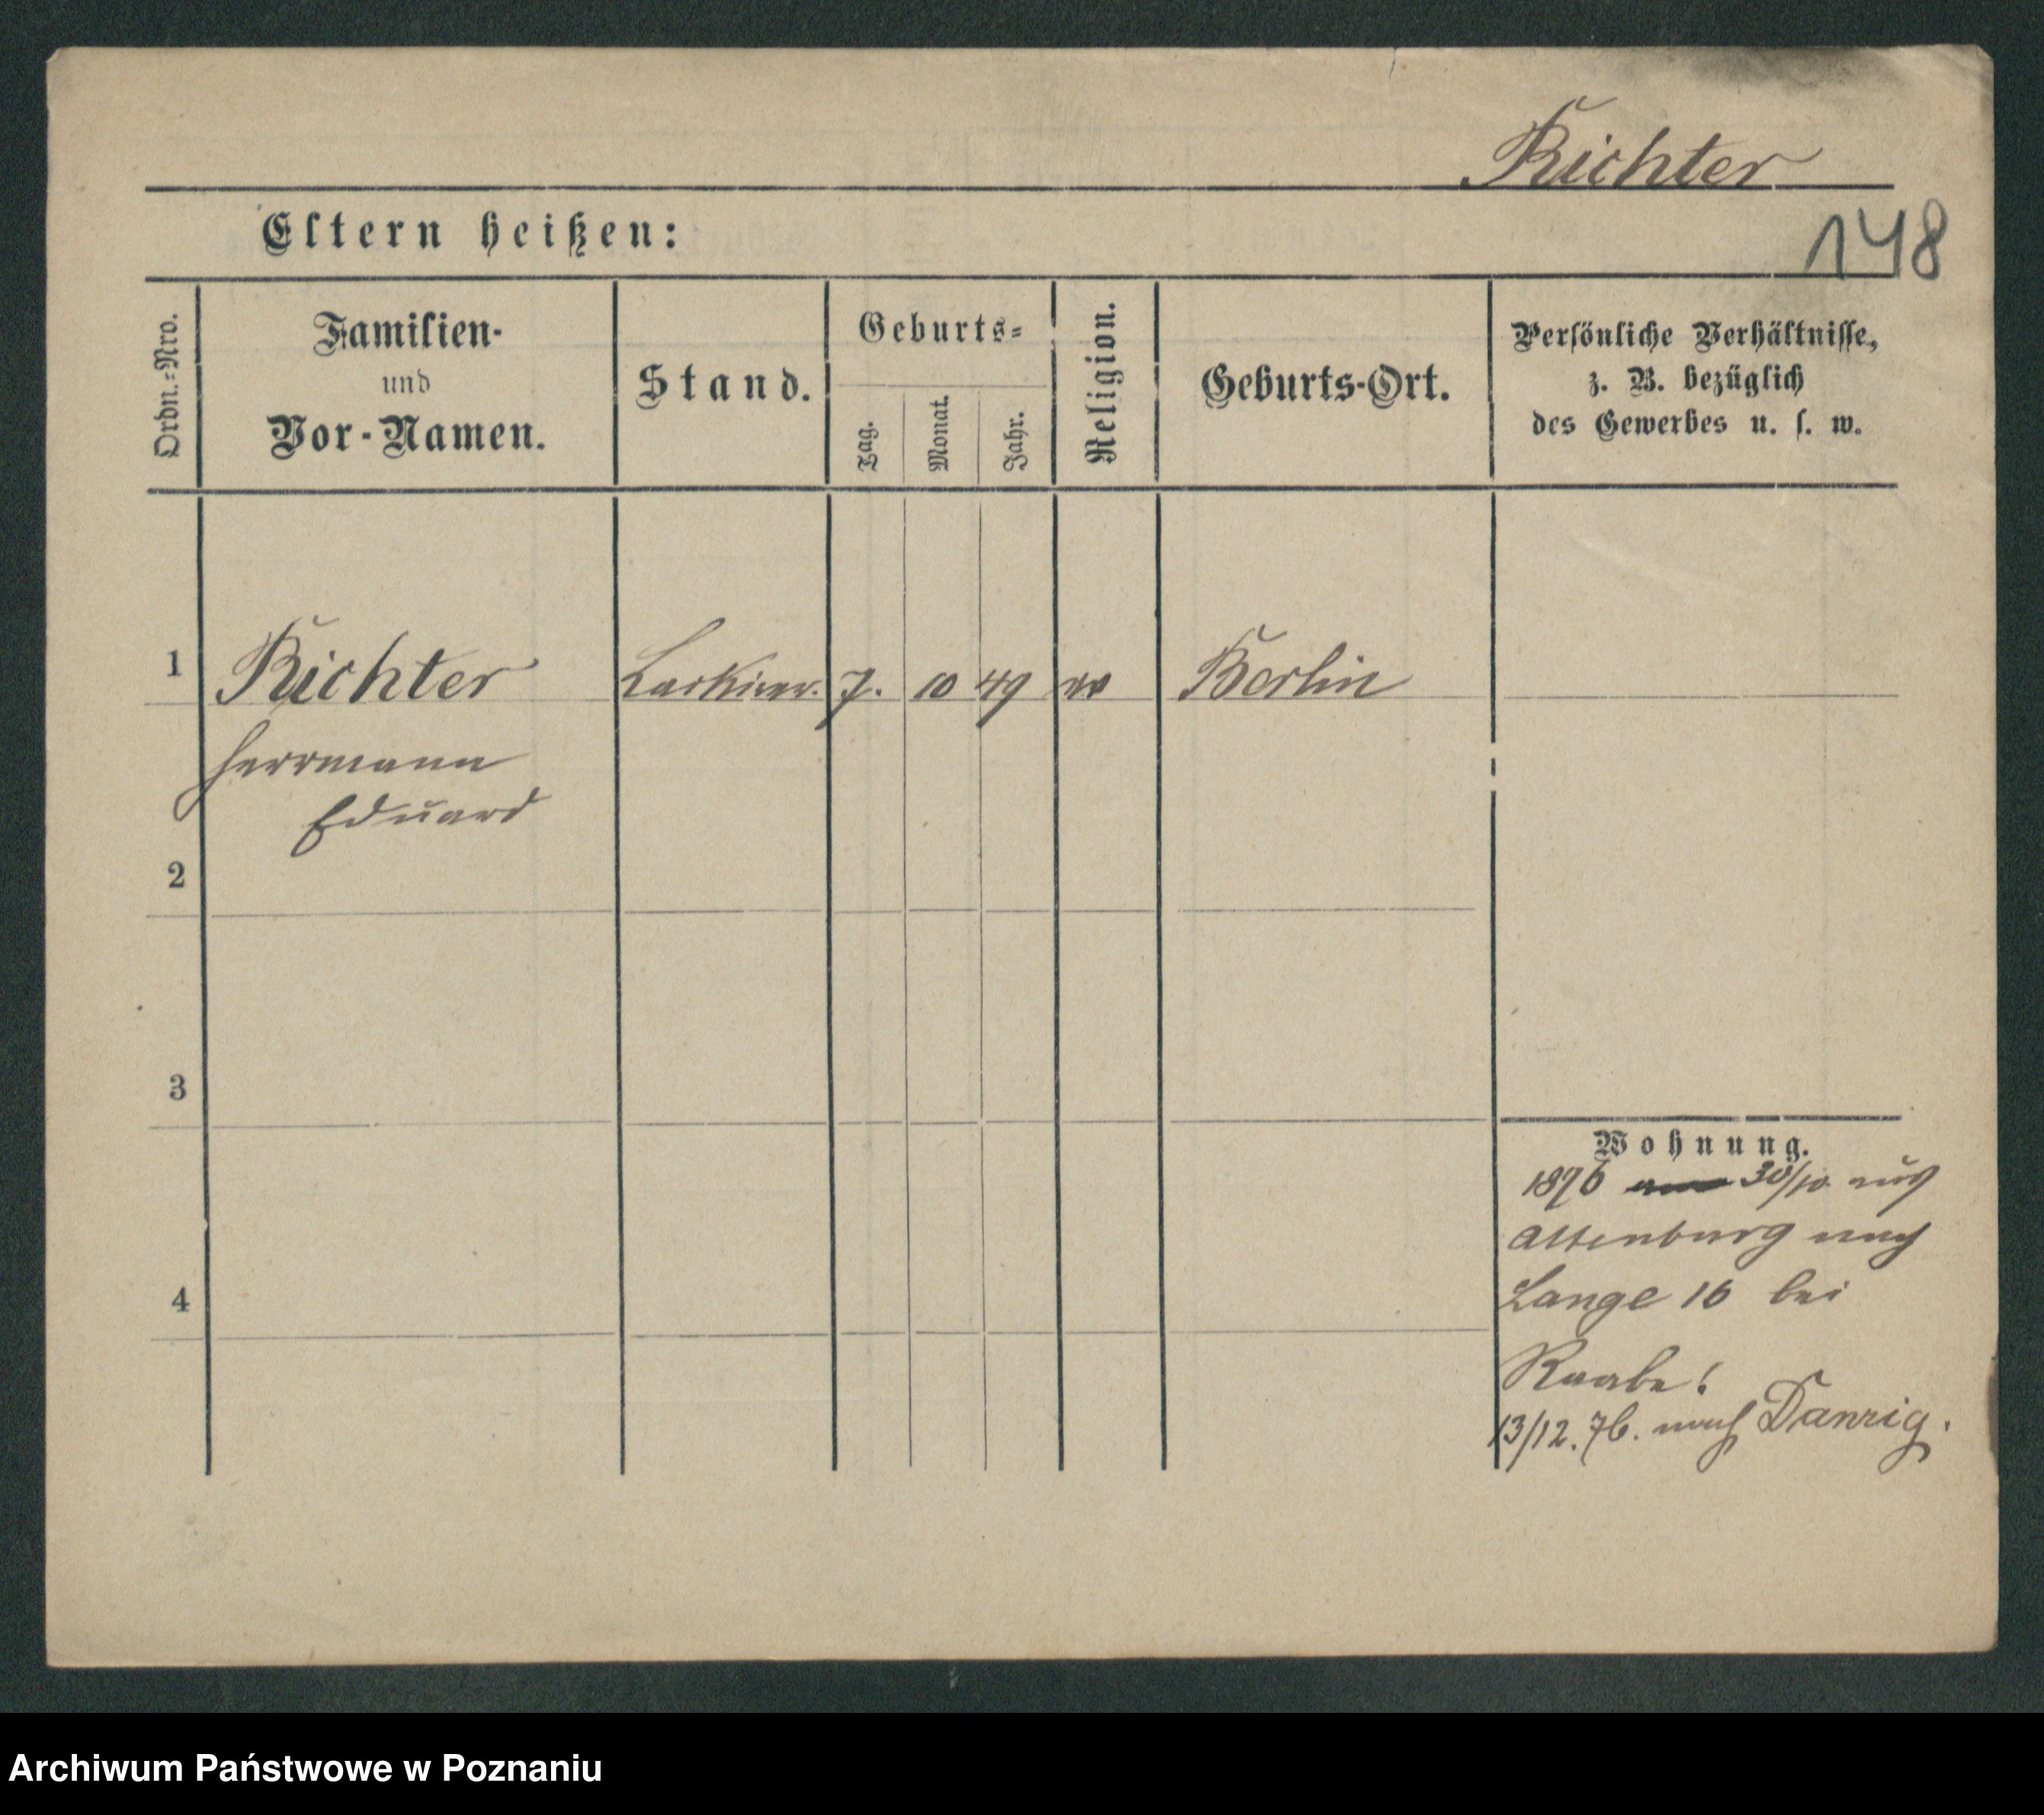 Richter
Eltern heißen:
148
Ordn.-Nro.
Familien-
und
Vor-Namen.
Stand.
Geburts-
Tag.
Monat.
Jahr.
Religion.
Geburts-Ort.
Persönliche Verhältnisse,
z. B. bezüglich
des Gewerbes u. s. w.
1 Richter Lackirer. 7. 10 49 Berlin
Herrmann
Eduard
2
3
4
Wohnung.
1876 30/10. aus
Altenburg nach
Lange 16 bei
Raabe!
13/12. 76. nach Danzig.
Archiwum Państwowe w Poznaniu